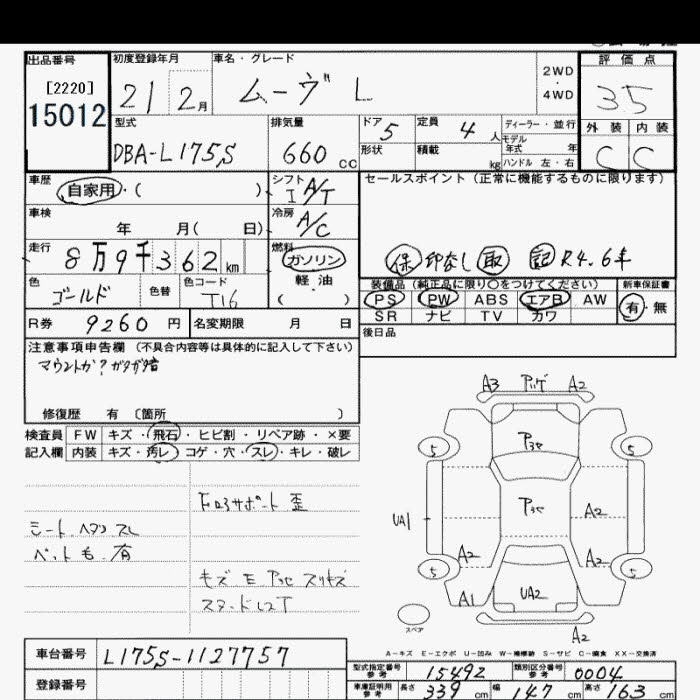 出品番号 初度登録年月 車名・グレード 2WD・4WD 評価点
[2220] 21 2月 ムーヴ L 35
15012
型式 排気量 ドア 5 定員 4人 ディーラー・並行 外装 内装
DBA-L175S 660cc 形状 積載 kg モデル年式 年 C C
ハンドル 左・右
車歴 自家用・( ) シフト I A/T セールスポイント (正常に機能するものに限ります)
車検 年 月( 日) 冷房 A/C
走行 8万9千362km 燃料 ガソリン 軽油 ( ) 保 印なし 取 記 R4.6キ
色 ゴールド 色替 色コード T16 装備品 (純正品に限り○をつけてください) 新車保証書
PS PW ABS エアB AW 有・無
R券 9260円 名変期限 月 日 SR ナビ TV カワ
後日品
注意事項申告欄 (不具合内容等は具体的に記入して下さい)
マウントか?ガタガタ音
修復歴 有 〔箇所 〕
検査員 FW キズ・飛石・ヒビ割・リペア跡・×要
記入欄 内装 キズ・汚レ・コゲ・穴・スレ・キレ・破レ
サポート歪
シート
ペット毛 有
キズ E
A3 A2
5 5
UA1 A2
A2 A2
5 5
A1 UA2
A2
スペア
A-キズ E-エクボ U-凹み W-補修跡 S-サビ C-腐食 XX-交換済
車台番号 L175S-1127757
登録番号
型式指定番号 参考 15492 類別区分番号 参考 0004
車庫証明用 参考 長さ 339cm 幅 147cm 高さ 163cm